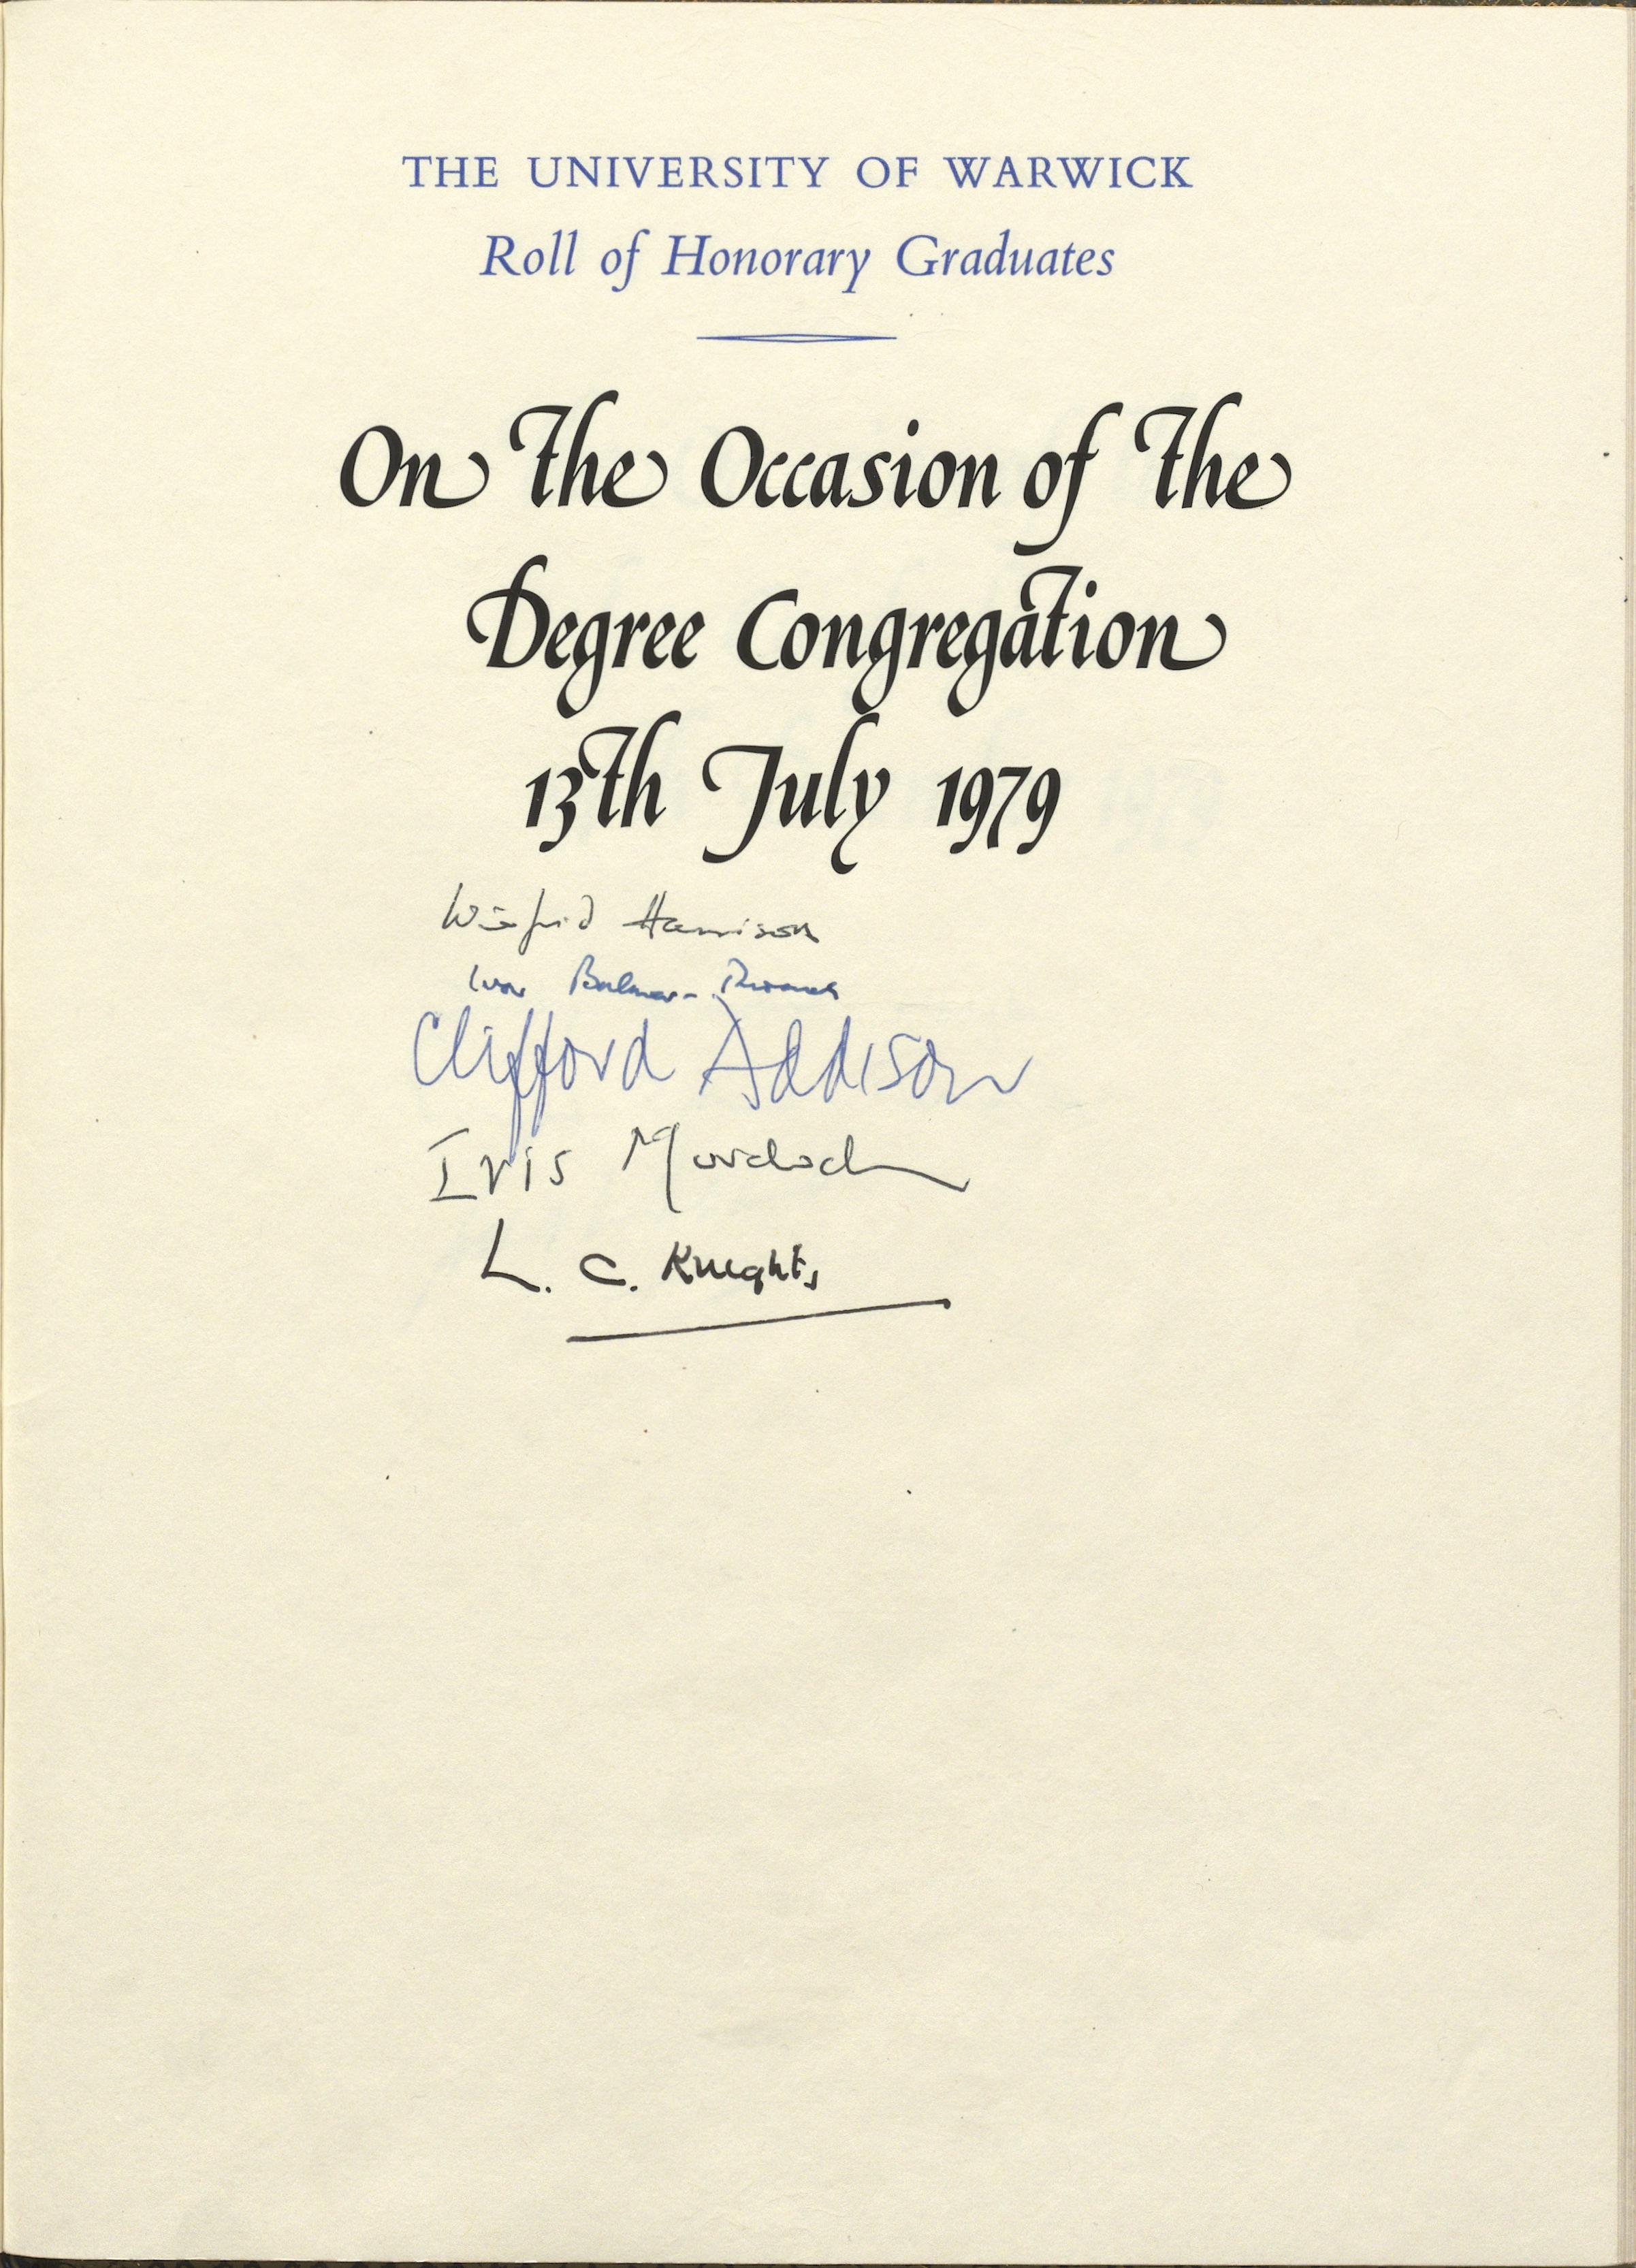 THE UNIVERSITY OF WARWICK
Roll of Honorary Graduates
On The Occasion of The
Degree Congregation
13th July 1979
Winifrid Harrison
Ivor Bulmer-Thomas
Clifford Addison
Iris Murdoch
L. C. Knights